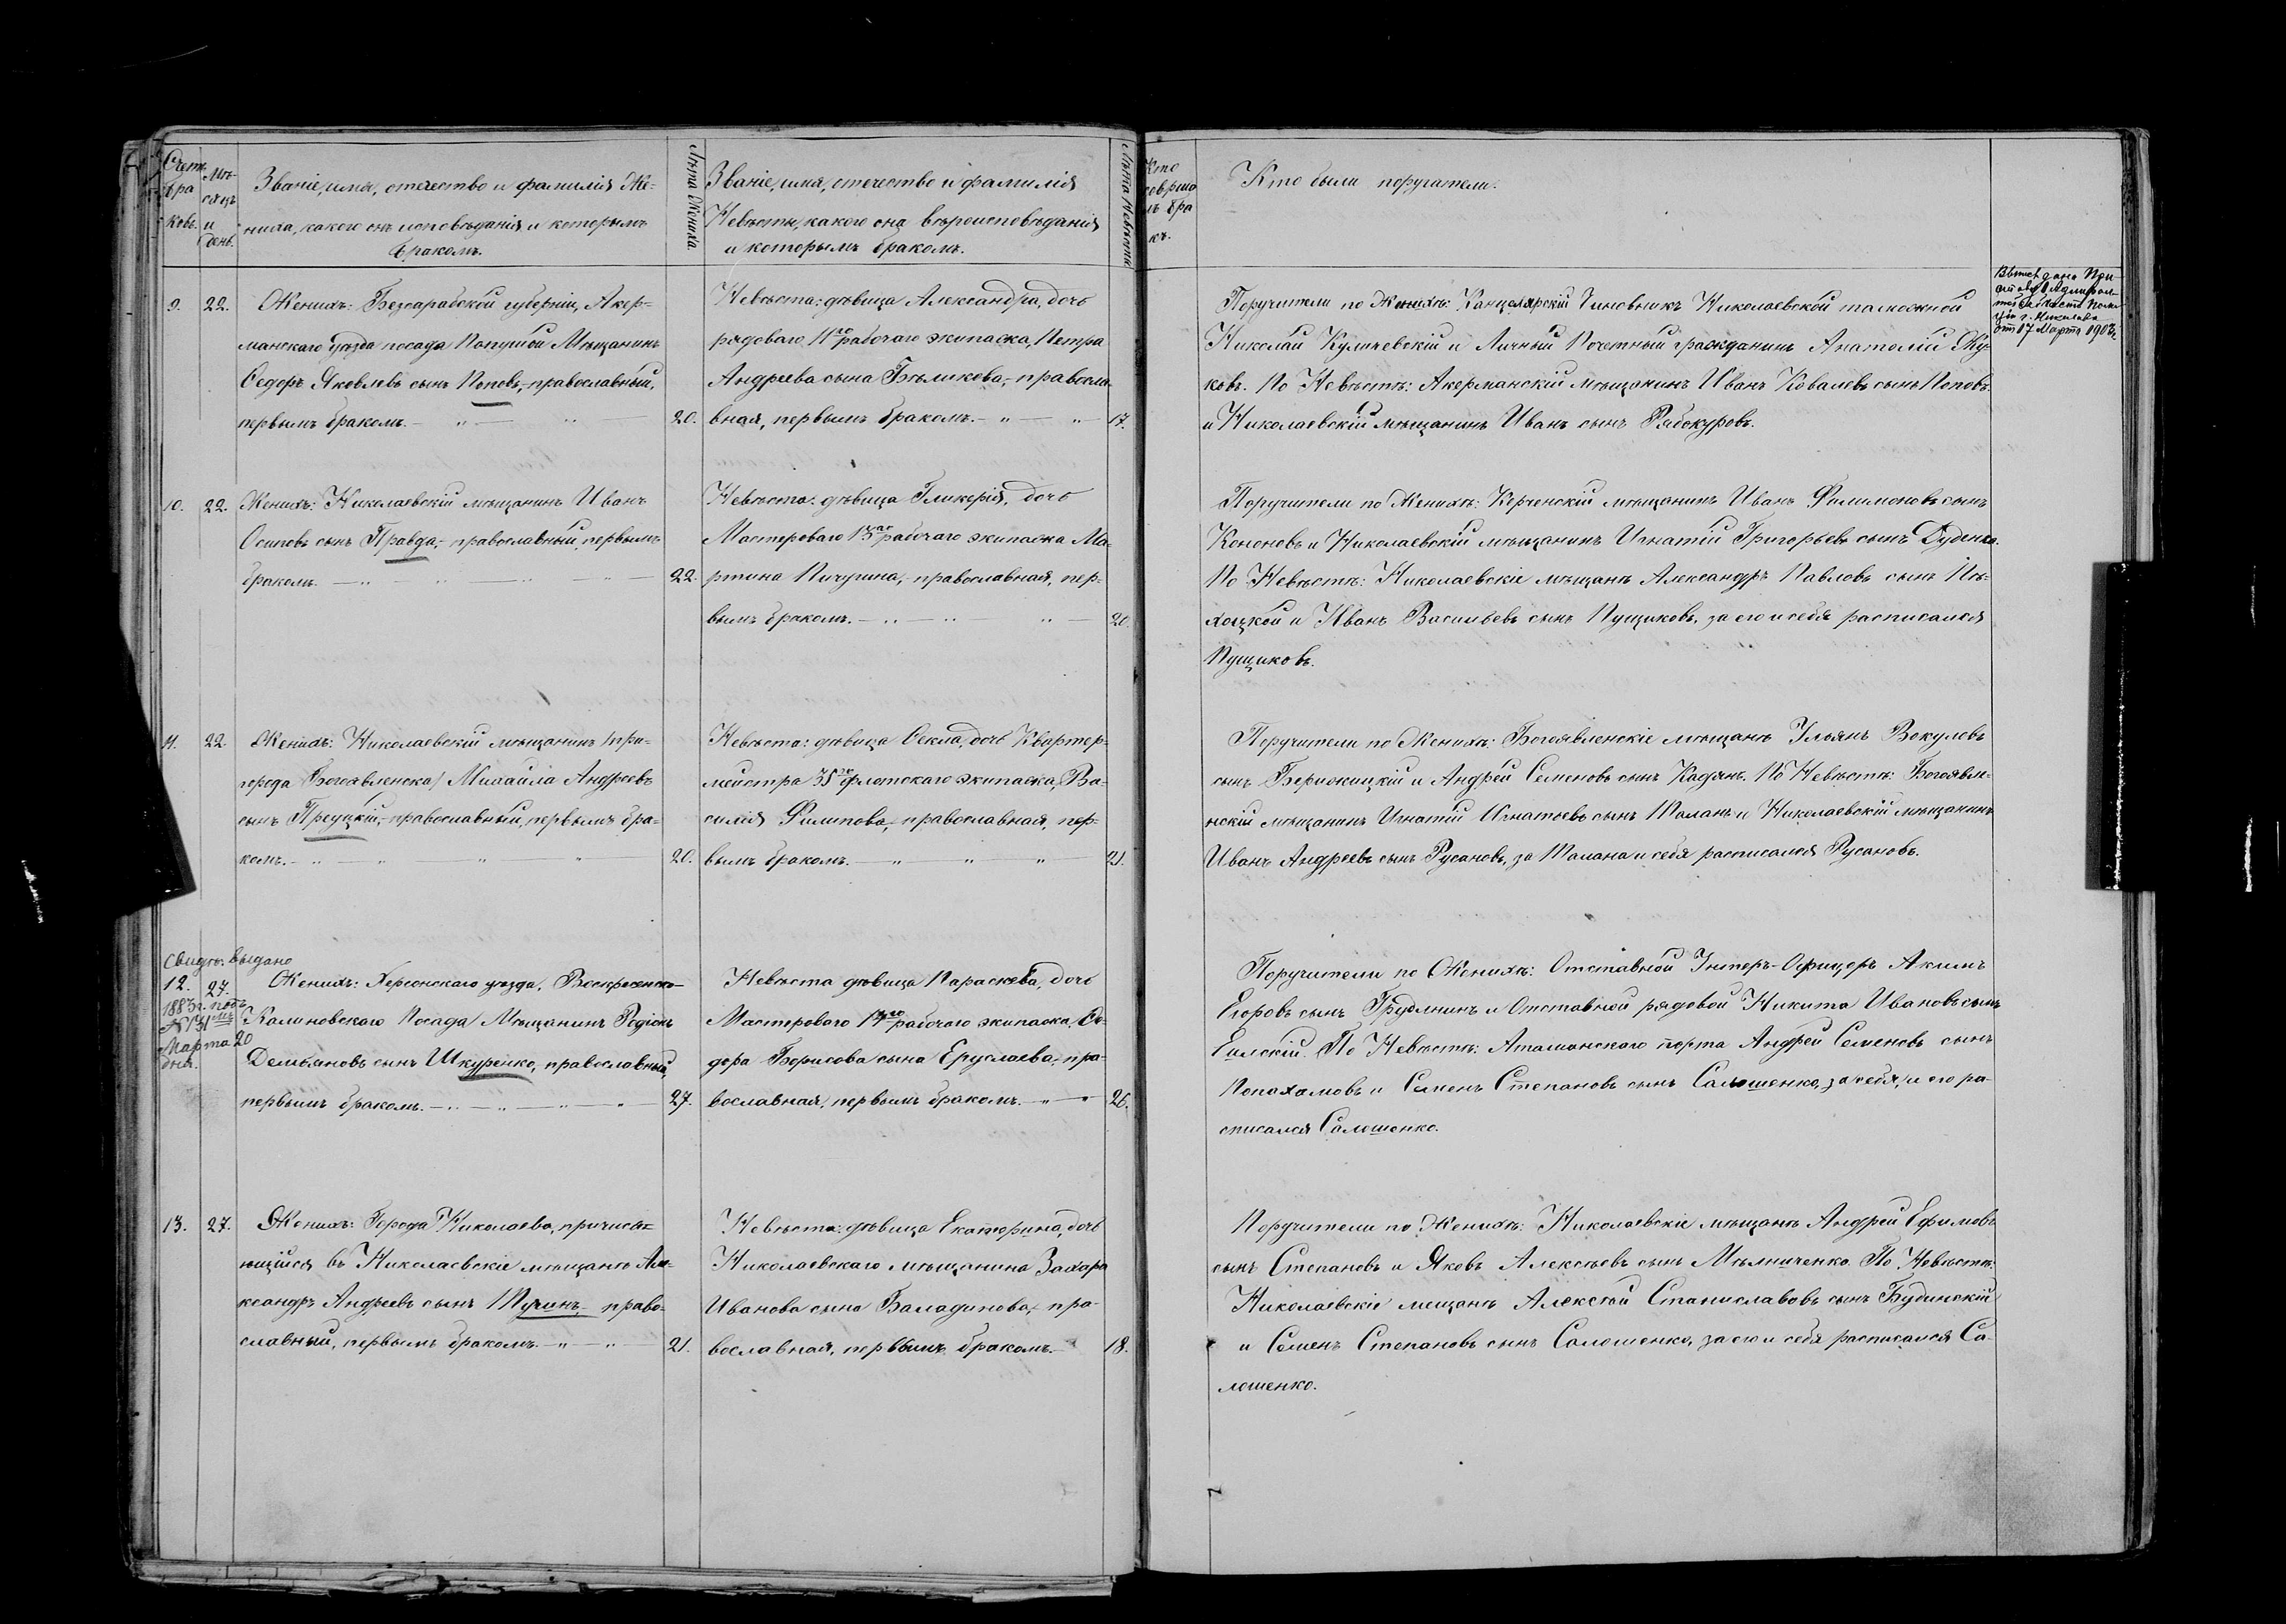 Счетъ бра ковъ.
Мѣ- сяцъ и день.
Званіе, имя, отечество и фамилія Же-
ниха, какого онъ исповѣданія и которымъ
бракомъ.
Лѣта Жениха.
Званіе, имя, отечество и фамилія
Невѣсты, какого она вѣроисповѣданія
и которымъ бракомъ.
Лѣта Невѣсты
Кто соверши лъ бра къ.
Кто были поручители.
9. 22.
Женихъ: Бессарабской губерніи, Акер-
манскаго уѣзда посада Мѣщанинъ
Ѳедоръ Яковлевъ сынъ Поповъ,- православный,
первымъ бракомъ.
20.
Невѣста: дѣвица Александра, дочь
рядоваго 11го рабочаго экипажа, Петра
Андреева сына Бѣликова,- правосла-
вная, первымъ бракомъ.
17.
Поручители по Женихѣ: Канцелярскій Чиновникъ Николаевской таможной
Николай Кулячевскій и Личный Почетный гражданинъ Анатолій Жу-
ковъ. По Невѣстѣ: Акерманскій мѣщанинъ Иванъ Ковалевъ сынъ Поповъ
и Николаевскій мѣщанинъ Иванъ сынъ Рябокуровъ.
г. Николаева
отъ 17 Марта 1907г.
10. 22.
Женихъ: Николаевскій мѣщанинъ Иванъ
Осиповъ сынъ Правда,- православный, первымъ
бракомъ.
22.
Невѣста: дѣвица Гликерія, дочь
Мастероваго 13го рабочаго экипажа Ма-
ртина Пичугина,- православная, пер-
вымъ бракомъ.
20.
Поручители по Женихѣ: Керченскій мѣщанинъ Иванъ Филимоновъ сынъ
Кононовъ и Николаевскій мѣщанинъ Игнатій Григорьевъ сынъ Дуденко.
По Невѣстѣ: Николаевскіе мѣщанѣ Александръ Павловъ сынъ Пѣ-
хоцкой и Иванъ Васильевъ сынъ Пущиковъ, за его и себя расписался
Пущиковъ.
11. 22.
Женихъ: Николаевскій мѣщанинъ /при-
города Богоявленска/ Михаила Андреевъ
сынъ Прецкій,- православный, первымъ бра-
комъ.
20.
Невѣста: дѣвица Ѳекла, дочь Квартер-
мейстра 35го флотскаго экипажа, Ва-
силія Филипова,- православная, пер-
вымъ бракомъ.
21.
Поручители по Женихѣ: Богоявленскіе мѣщанѣ Ульянъ Вакуловъ
сынъ Бережицкій и Андрей Семеновъ сынъ Кадянъ. По Невѣстѣ: Богоявле-
нскій мѣщанинъ Игнатій Игнатьевъ сынъ Маланъ и Николаевскій мѣщанинъ
Иванъ Андреевъ сынъ Русановъ, за Малана и себя расписался Русановъ.
Свидѣ: выдано
12. 27.
1883г. подъ
№ 131
Марта 20
дня.
Женихъ: Херсонскаго уѣзда, Воскресенско-
Калиновскаго Посада Мѣщанинъ Родіонъ
Демьяновъ сынъ Шкуренко, православный,
первымъ бракомъ.
27.
Невѣста дѣвица Параскева, дочь
Мастероваго 14го рабочаго экипажа, Ѳе-
дора Борисова сына Еруслаева,- пра-
вославная, первымъ бракомъ.
26.
Поручители по Женихѣ: Отставной Унтеръ-Офицеръ Акимъ
Егоровъ сынъ Грудининъ и Отставной рядовой Никита Ивановъ сынъ
По Невѣстѣ: Атаманскаго порта Андрей Семеновъ сынъ
Попахамовъ и Семенъ Степановъ сынъ Салошенко, за себя, и его ра-
списался Салошенко.
13. 27.
Женихъ: Города Николаева, причисля-
ющійся въ Николаевскіе мѣщанѣ Але-
ксандръ Андреевъ сынъ Пучинъ,- право-
славный, первымъ бракомъ.
21.
Невѣста: дѣвица Екатерина, дочь
Николаевскаго мѣщанина Захара
Иванова сына Баладинова,- пра-
вославная, первымъ бракомъ.
18.
Поручители по Женихѣ: Николаевскіе мѣщанѣ Андрей Ефимовъ
сынъ Степановъ и Яковъ Алексѣевъ сынъ Мѣльниченко. По Невѣстѣ:
Николаевскіе мещанѣ Алексѣй Станиславовъ сынъ Будинскій
и Семенъ Степановъ сынъ Салошенко, за его и себя расписался Са-
лошенко.